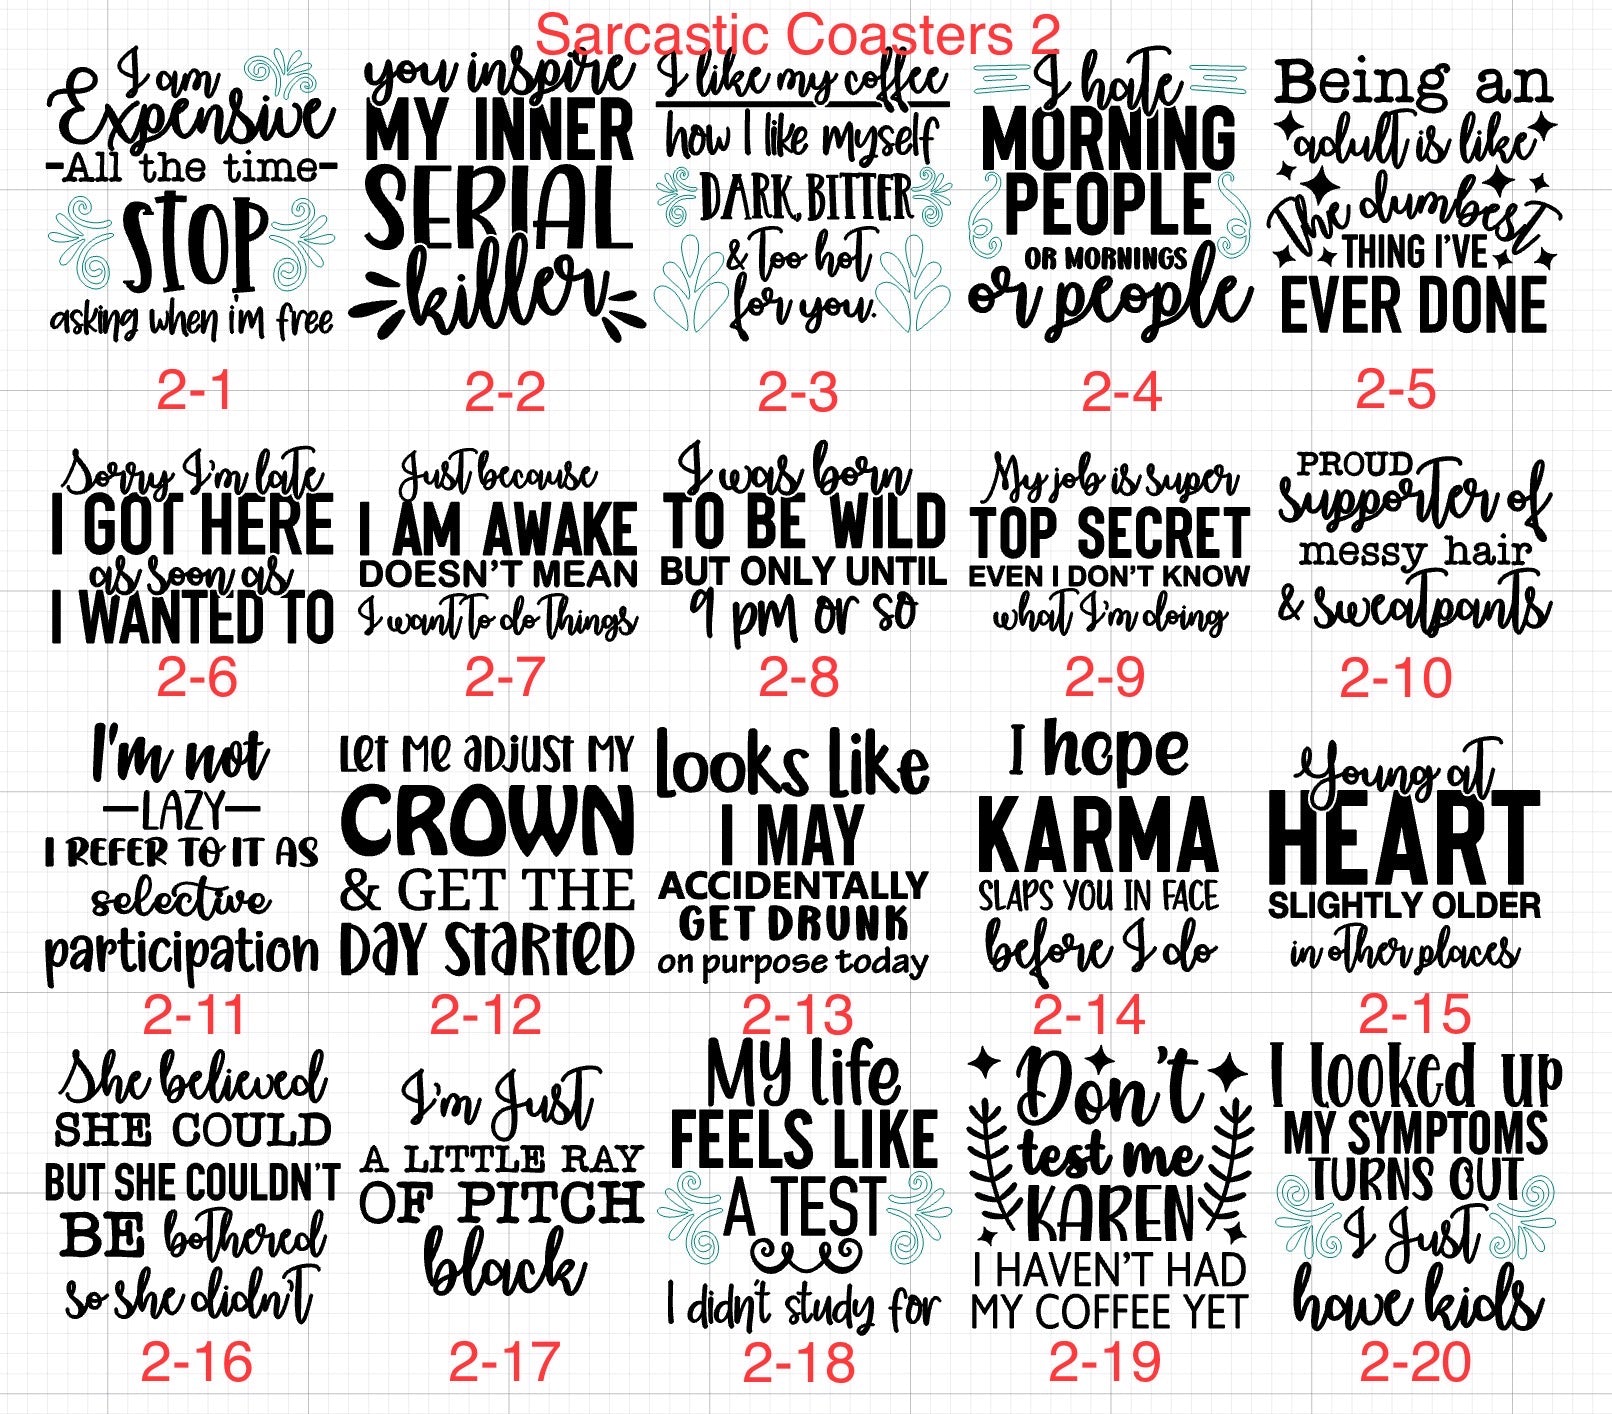 Sarcastic Coasters 2
I am
Expensive
-All the time-
STOP
asking when i'm free
2-1
you inspire
MY INNER
SERIAL
killer
2-2
I like my coffee
how I like myself
DARK, BITTER
& too hot
for you.
2-3
I hate
MORNING
PEOPLE
OR MORNINGS
or people
2-4
Being an
adult is like
The dumbest
THING I'VE
EVER DONE
2-5
Sorry I'm late
I GOT HERE
as soon as
I WANTED TO
2-6
Just because
I AM AWAKE
DOESN'T MEAN
I want to do things
2-7
I was born
TO BE WILD
BUT ONLY UNTIL
9 pm or so
2-8
My job is super
TOP SECRET
EVEN I DON'T KNOW
what I'm doing
2-9
PROUD
supporter of
messy hair
& sweatpants
2-10
I'm not
—LAZY—
I REFER TO IT AS
selective
participation
2-11
Let Me adjust MY
CROWN
& GET THE
Day Started
2-12
looks like
I MAY
ACCIDENTALLY
GET DRUNK
on purpose today
2-13
I hope
KARMA
SLAPS YOU IN FACE
before I do
2-14
Young at
HEART
SLIGHTLY OLDER
in other places
2-15
She believed
SHE COULD
BUT SHE COULDN'T
BE bothered
so she didn't
2-16
I'm Just
A LITTLE RAY
OF PITCH
black
2-17
My life
FEELS LIKE
A TEST
I didn't study for
2-18
Don't
test me
KAREN
I HAVEN'T HAD
MY COFFEE YET
2-19
I looked up
MY SYMPTOMS
TURNS OUT
I Just
have kids
2-20